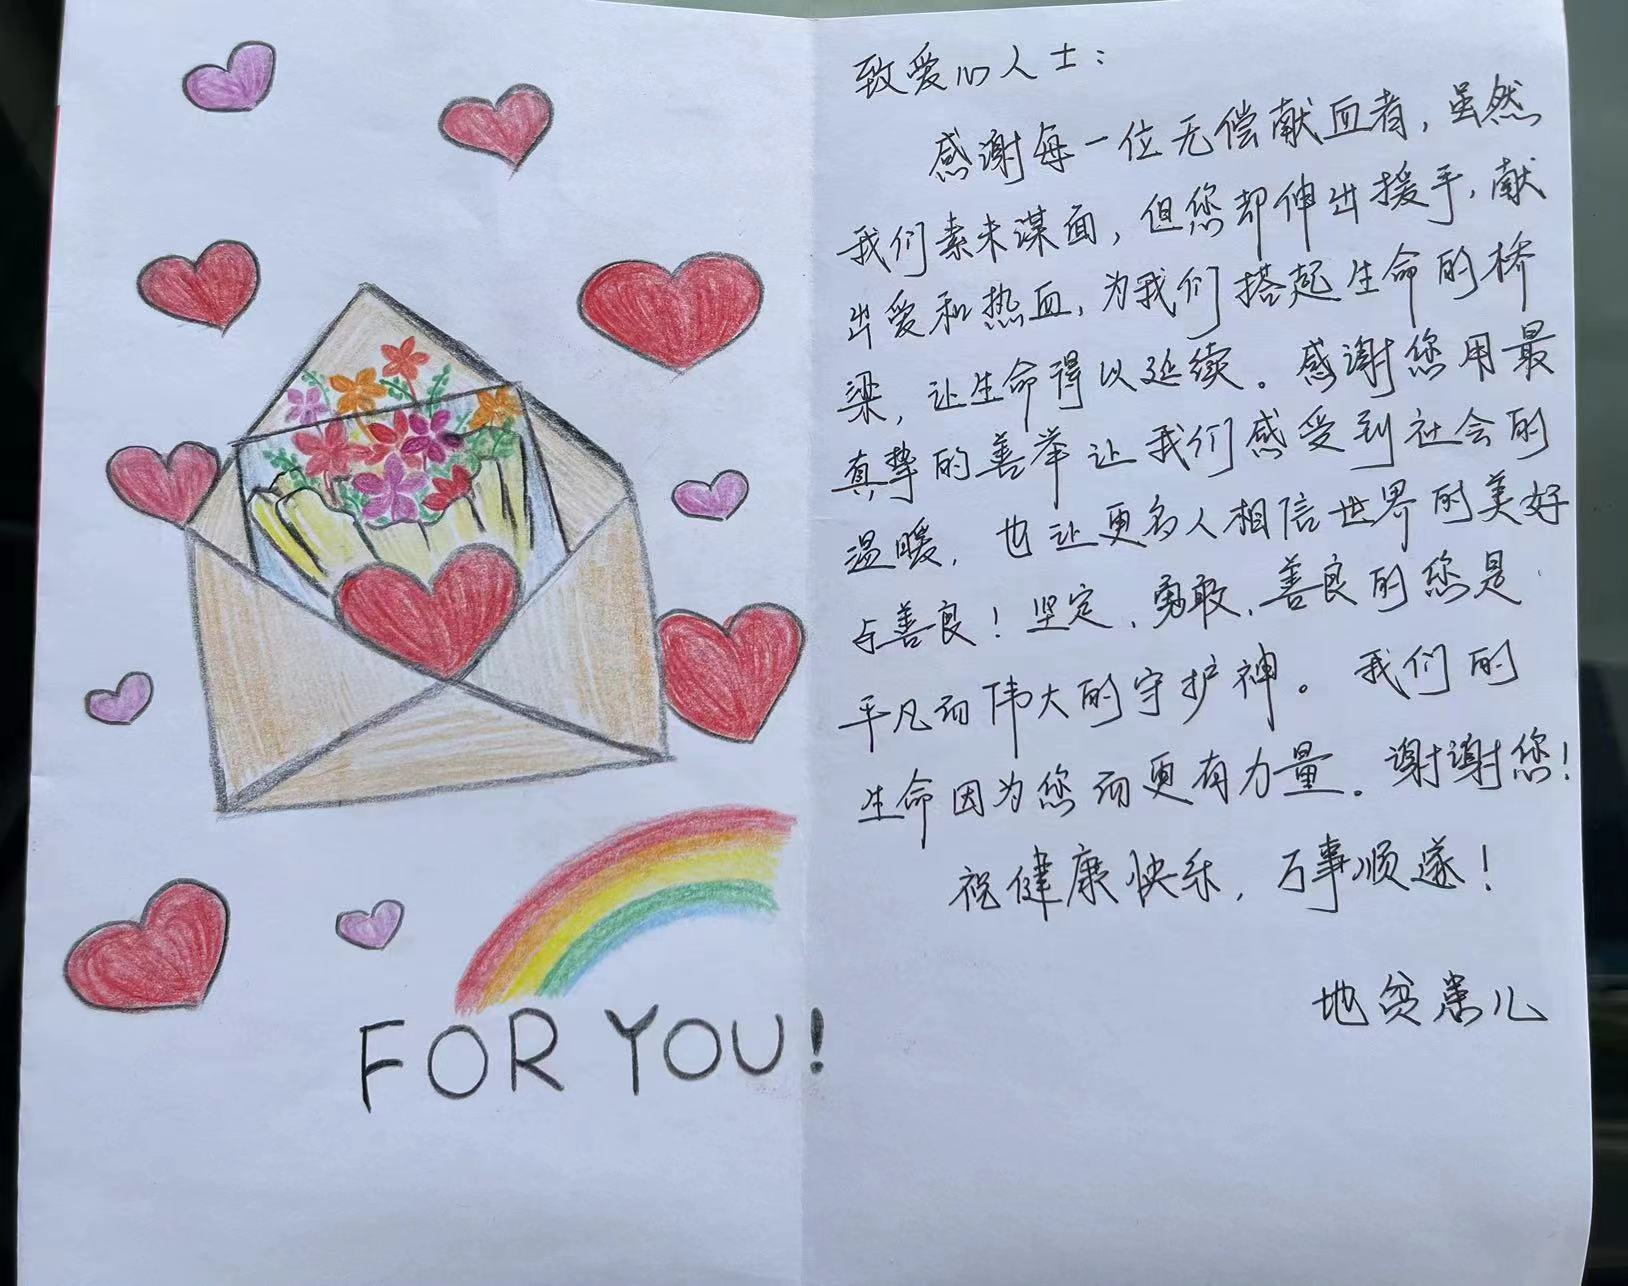 FOR YOU!
致爱心人士：
感谢每一位无偿献血者，虽然
我们素未谋面，但您却伸出援手，献
出爱和热血，为我们搭起生命的桥
梁，让生命得以延续。感谢您用最
真挚的善举让我们感受到社会的
温暖，也让更多人相信世界的美好
与善良！坚定，勇敢，善良的您是
平凡而伟大的守护神。我们的
生命因为您而更有力量。谢谢您！
祝健康快乐，万事顺遂！
地贫患儿